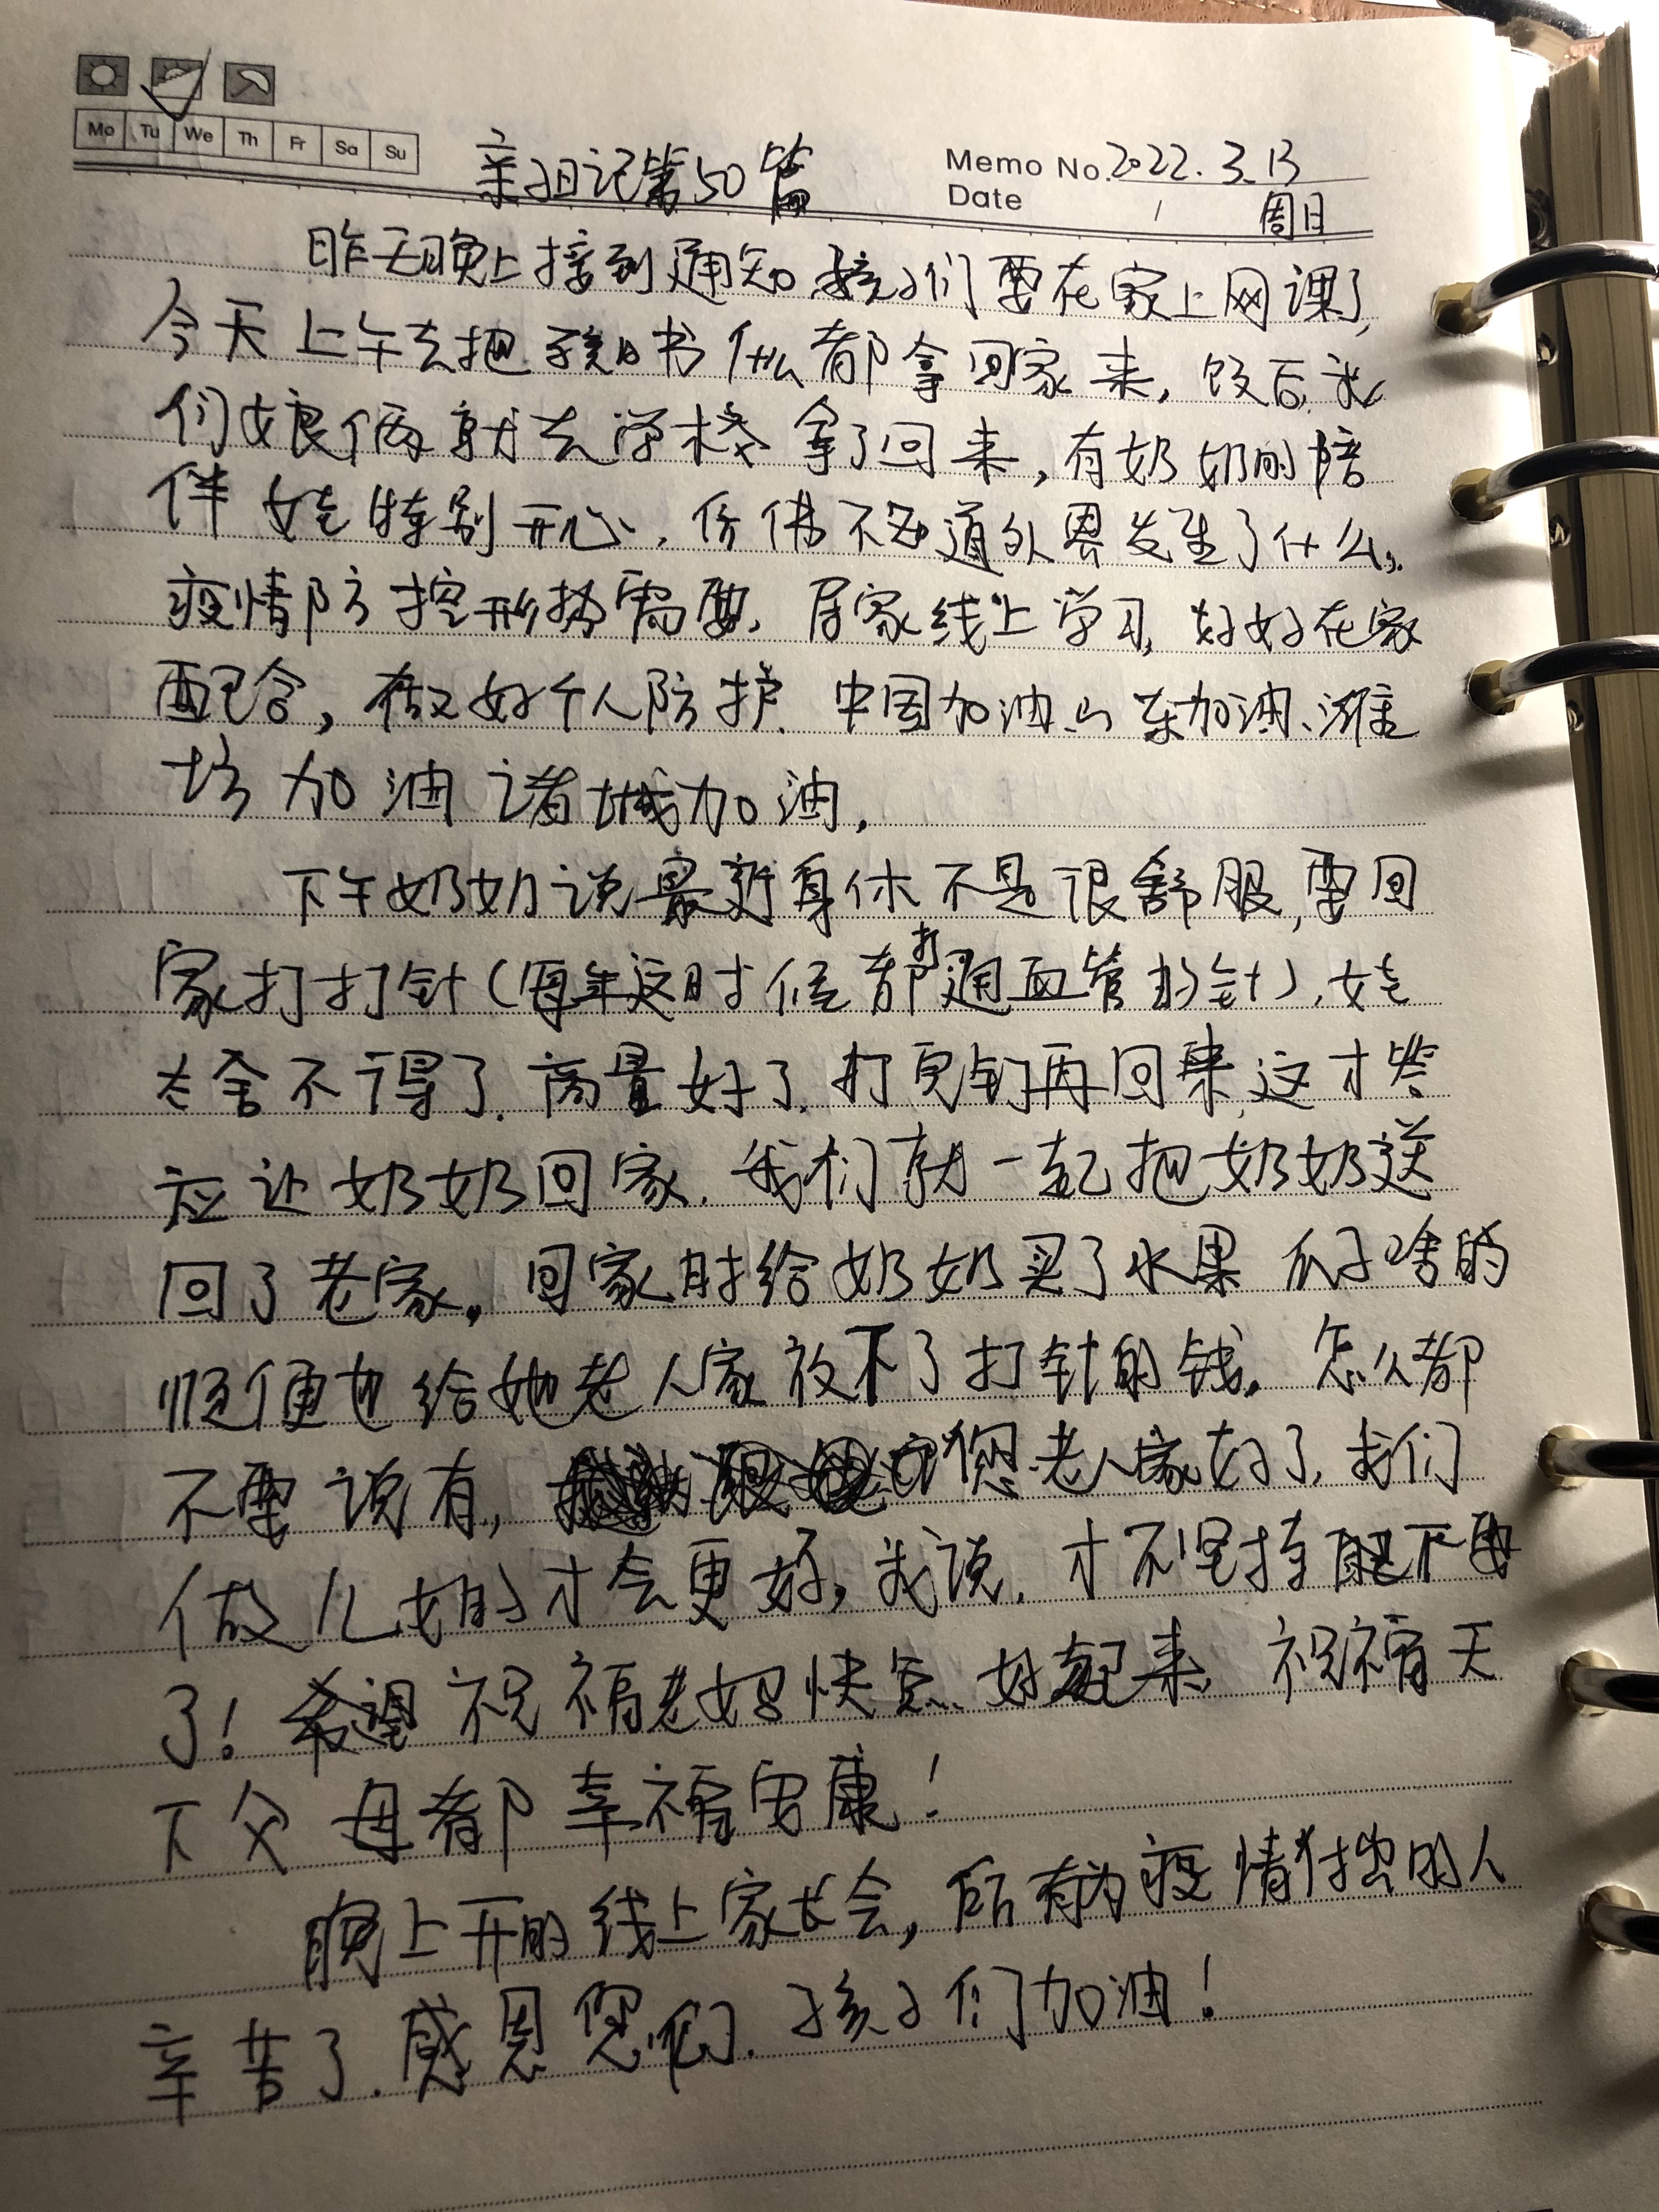 Mo Tu We Th Fr Sa Su
亲子日记第50篇
Memo No. 2022.3.13
Date / 周日
昨天晚上接到通知孩子们要在家上网课了,
今天上午去把孩子的书什么都拿回家来,饭后我
们娘俩就去学校拿了回来,有奶奶的陪
伴娃特别开心,仿佛不知道外界发生了什么,
疫情防控形势需要,居家线上学习,好好在家
配合,做好个人防护.中国加油、山东加油、潍
坊加油诸城加油,
下午奶奶说最近身体不是很舒服,要回
家打打针(每年这时候都打通血管的针),娃
太舍不得了.商量好了.打完针再回来,这才答
应让奶奶回家.我们就一起把奶奶送
回了老家。回家时给奶奶买了水果瓜子啥的
顺便也给她老人家放下了打针的钱。怎么都
不要说有,您老人家好了,我们
做儿女的才会更好,我说.才不坚持不要
了!希望祝福老妈快点好起来,祝福天
下父母都幸福安康!
晚上开的线上家长会,所有为疫情付出的人
辛苦了.感恩您们.孩子们加油!